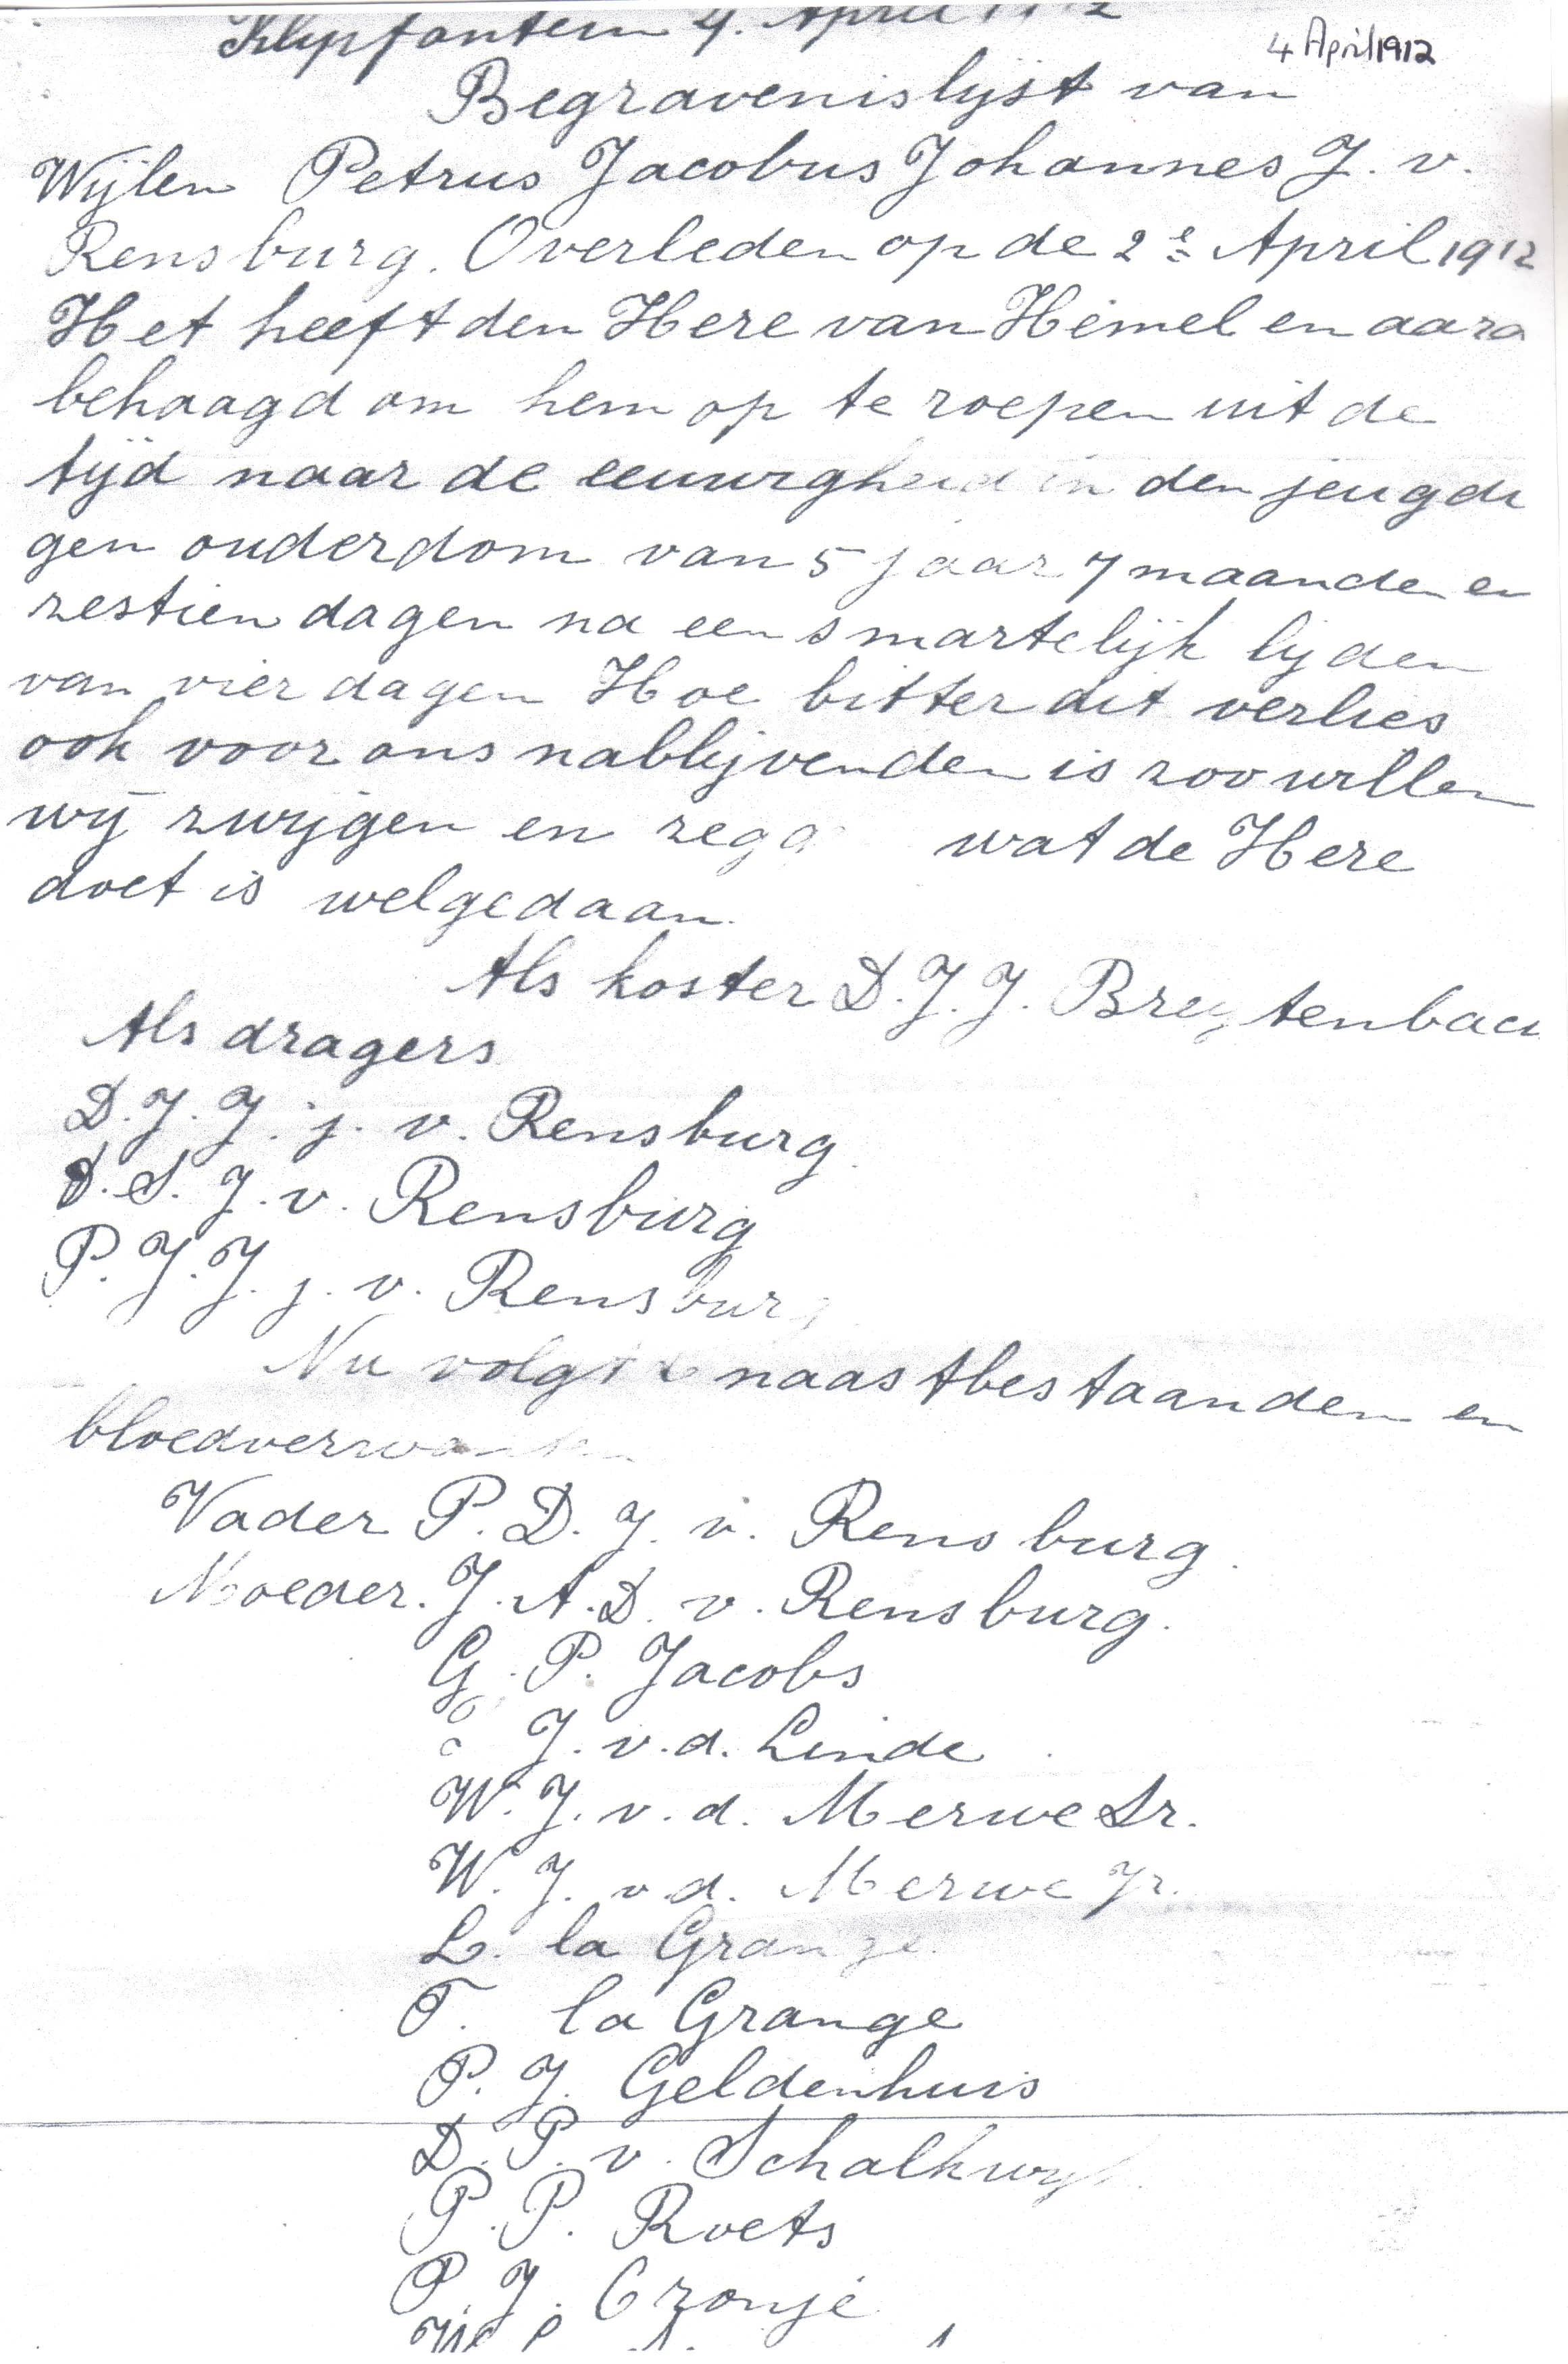 Klipfontein 4. April 1912
4 April 1912
Begravenislijst van
Wijlen Petrus Jacobus Johannes J. v.
Rensburg. Overleden op de 2e April 1912
Het heeft den Here van Hemel en aard
behaagd om hem op te roepen uit de
tijd naar de eeuwigheid in den jeugdi
gen ouderdom van 5 jaar 7 maanden en
zestien dagen na een smartelijk lijden
van vier dagen Hoe bitter dit verlies
ook voor ons nablijvenden is zoo willen
wij zwijgen en zegg wat de Here
doet is welgedaan.
Als koster D. J. J. Breytenbach
Als dragers
D. J. J. j. v. Rensburg.
D. S. J. v. Rensburg
P. J. J. j. v. Rensburg
Nu volgt de naastbestaanden en
bloedverwanten
Vader P. D. J. v. Rensburg.
Moeder. J. A. D. v. Rensburg.
G. P. Jacobs
J. v. d. Linde
W. J. v. d. Merwe Sr.
W. J. v. d. Merwe Jr.
L. la Grange
T. la Grange
P. J. Geldenhuis
D. P. v. Schalkwyk
P. P. Roets
P. J. Cronjé